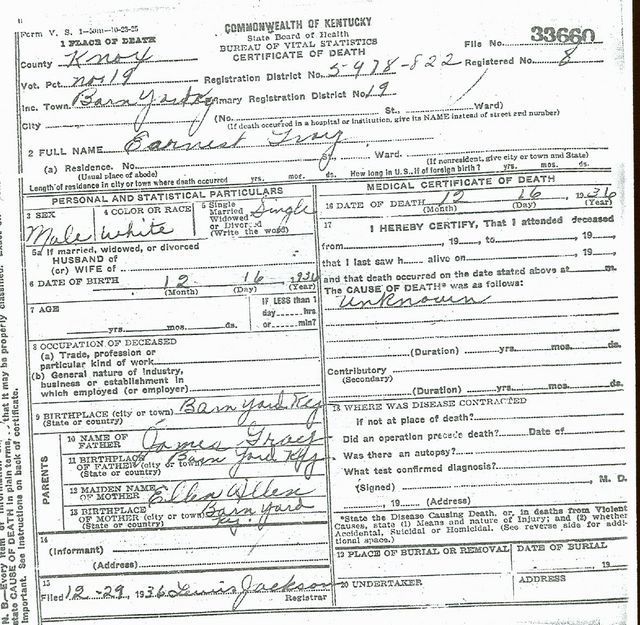 Form V. S. 1-50m-10-23-25
COMMONWEALTH OF KENTUCKY
State Board of Health
BUREAU OF VITAL STATISTICS
CERTIFICATE OF DEATH
33660
File No.
1 PLACE OF DEATH
County Knox
Registered No. 8
Vot. Pct. no 19
Registration District No. 5-978-822
Inc. Town Barn Yard Ky
Primary Registration District No. 19
City (No. St., Ward)
(If death occurred in a hospital or institution, give its NAME instead of street and number)
2 FULL NAME Earnest
(a) Residence. No. St., Ward.
(Usual place of abode) (If nonresident, give city or town and State)
Length of residence in city or town where death occurred yrs. mos. ds. How long in U.S., if of foreign birth? yrs. mos. ds.
PERSONAL AND STATISTICAL PARTICULARS
3 SEX Male
4 COLOR OR RACE White
5 Single
Married
Widowed
or Divorced
(Write the word)
Single
5a If married, widowed, or divorced
HUSBAND of
(or) WIFE of
6 DATE OF BIRTH 12 16 1936
(Month) (Day) (Year)
7 AGE
yrs. mos. ds.
IF LESS than 1
day hrs
or min?
8 OCCUPATION OF DECEASED
(a) Trade, profession or
particular kind of work
(b) General nature of industry,
business or establishment in
which employed (or employer)
9 BIRTHPLACE (city or town) Barn Yard Ky
(State or country)
PARENTS
10 NAME OF
FATHER James
11 BIRTHPLACE
OF FATHER (city or town) Barn Yard Ky
(State or country)
12 MAIDEN NAME
OF MOTHER Ellen Allen
13 BIRTHPLACE
OF MOTHER (city or town) Barn Yard
(State or country) Ky.
14
(Informant)
(Address)
15
Filed 12-29, 1936 Lewis Jackson
Registrar
MEDICAL CERTIFICATE OF DEATH
16 DATE OF DEATH 12 16, 1936
(Month) (Day) (Year)
17
I HEREBY CERTIFY, That I attended deceased
from , 19 , to , 19 ,
that I last saw h alive on , 19 ,
and that death occurred on the date stated above at m.
The CAUSE OF DEATH* was as follows:
unknown
(Duration) yrs. mos. ds.
Contributory
(Secondary)
(Duration) yrs. mos. ds.
18 WHERE WAS DISEASE CONTRACTED
If not at place of death?
Did an operation precede death? Date of
Was there an autopsy?
What test confirmed diagnosis?
(Signed) , M. D.
, 19 (Address)
*State the Disease Causing Death, or, in deaths from Violent
Causes, state (1) Means and nature of Injury; and (2) whether
Accidental, Suicidal or Homicidal. (See reverse side for addi-
tional space.)
19 PLACE OF BURIAL OR REMOVAL
DATE OF BURIAL
, 19
20 UNDERTAKER
ADDRESS
N. B.—Every item of
state CAUSE OF DEATH in plain terms, that it may be properly classified.
important. See instructions on back of certificate.